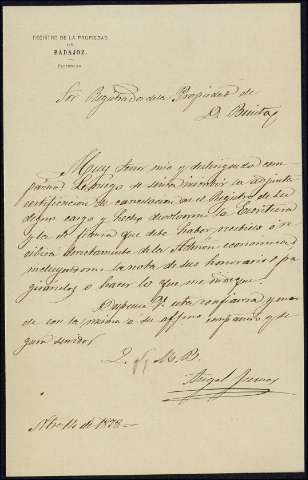 REGISTRO DE LA PROPIEDAD
DE
BADAJOZ.
Sor Registrador de la Propiedad de
D. Benito
Muy Señor mio y distinguido com
pañero: Le ruego se sirva inscribir la adjunta
certificacion de cancelacion en el Registro de su
digno cargo y hecho devolverme la Escritura
y la de fianza que debe haber recibido ó re
cibirá directamente de la Admon economica,
incluyendome la nota de sus honorarios p.ª
girarselos o hacer lo que me indique.
Dispense V. esta confianza y man
de con la misma a su affmo compañero y se
guro servidor
Q. B. S. M.
Angel
Nbre 14 de 1878